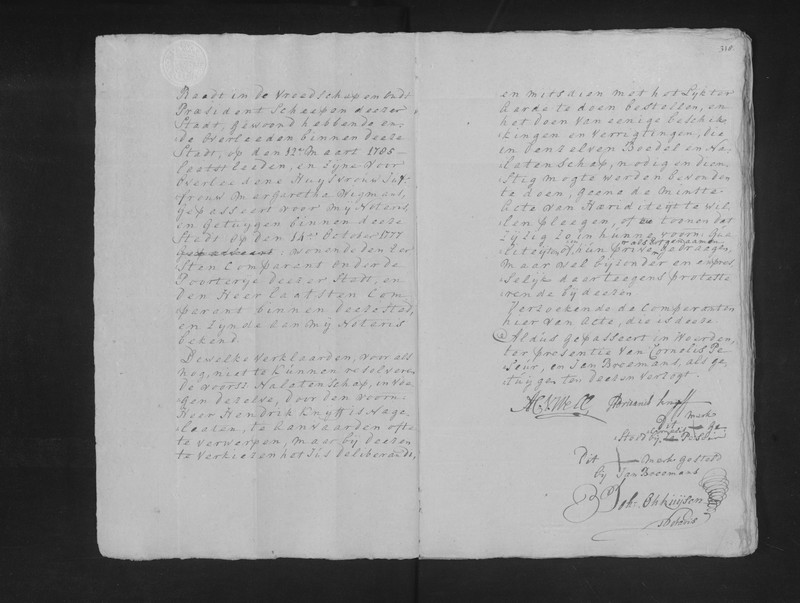 Raadt in de Vroedschap en oudt
Præsident Scheepen deezer
Stadt, gewoond hebbende en
de overleeden binnen deeze
Stadt, op den 12en Maart 1785
laatstleeden, en zijne voor
overleedene Huysvrouw Juf-
frouw Margaretha Wigmant,
gepasseert voor mij Notaris
en getuygen binnen deeze
Stadt op den 14en October 1777
gepasseert; wonende den eer
sten Comparant onder de
Poorterije deezer Stadt, en
den Heer laatsten Com
parant binnen deeze stad,
en zijnde aan mij Notaris
bekend.
Dewelke verklaarden, voor als
nog, niet te kunnen resolveren
de voorsz. Nalatenschap, in voe
gen dezelve, door den voorn.
Heer Hendrik Knijff is nage-
laaten, te aanvaarden ofte
te verwerpen, maar bij deezen
te verkiezen het Jus deliberandi,
310.
en mitsdien met het Lijk ter
aarde te doen bestellen, en
het doen van eenige beschik
kingen en verrigtingen, die
in denzelven Boedel en Na-
latenschap, nodig en dien-
stig mogte worden bevonden
te doen, geene de minste
acte van Hariditeyt te wil
len pleegen, of te toonen dat
zij zig zo in hunne voorn: qua
liteyten, of hun privé, gedraagen,
maar wel bijzonder en expres
selijk daar teegens protestee
rende bij deezen
Verzoekende de Comparanten
hier van Acte, die is deeze.
Aldus gepasseert in Woerden,
ter presentie van Cornelis Pe
, en Jan Breemand, als ge
tuygen ten deezen verzogt.
Knijff
Dit merk
gestelt
Cornelis
Dit merk gestelt
bij Jan Breemand
Notaris